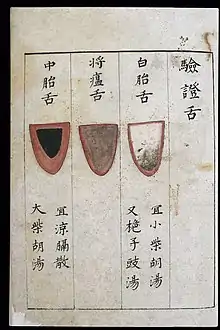 驗證舌
白胎舌
宜小柴胡湯
又梔子豉湯
將瘟舌
中胎舌
宜涼膈散
大柴胡湯